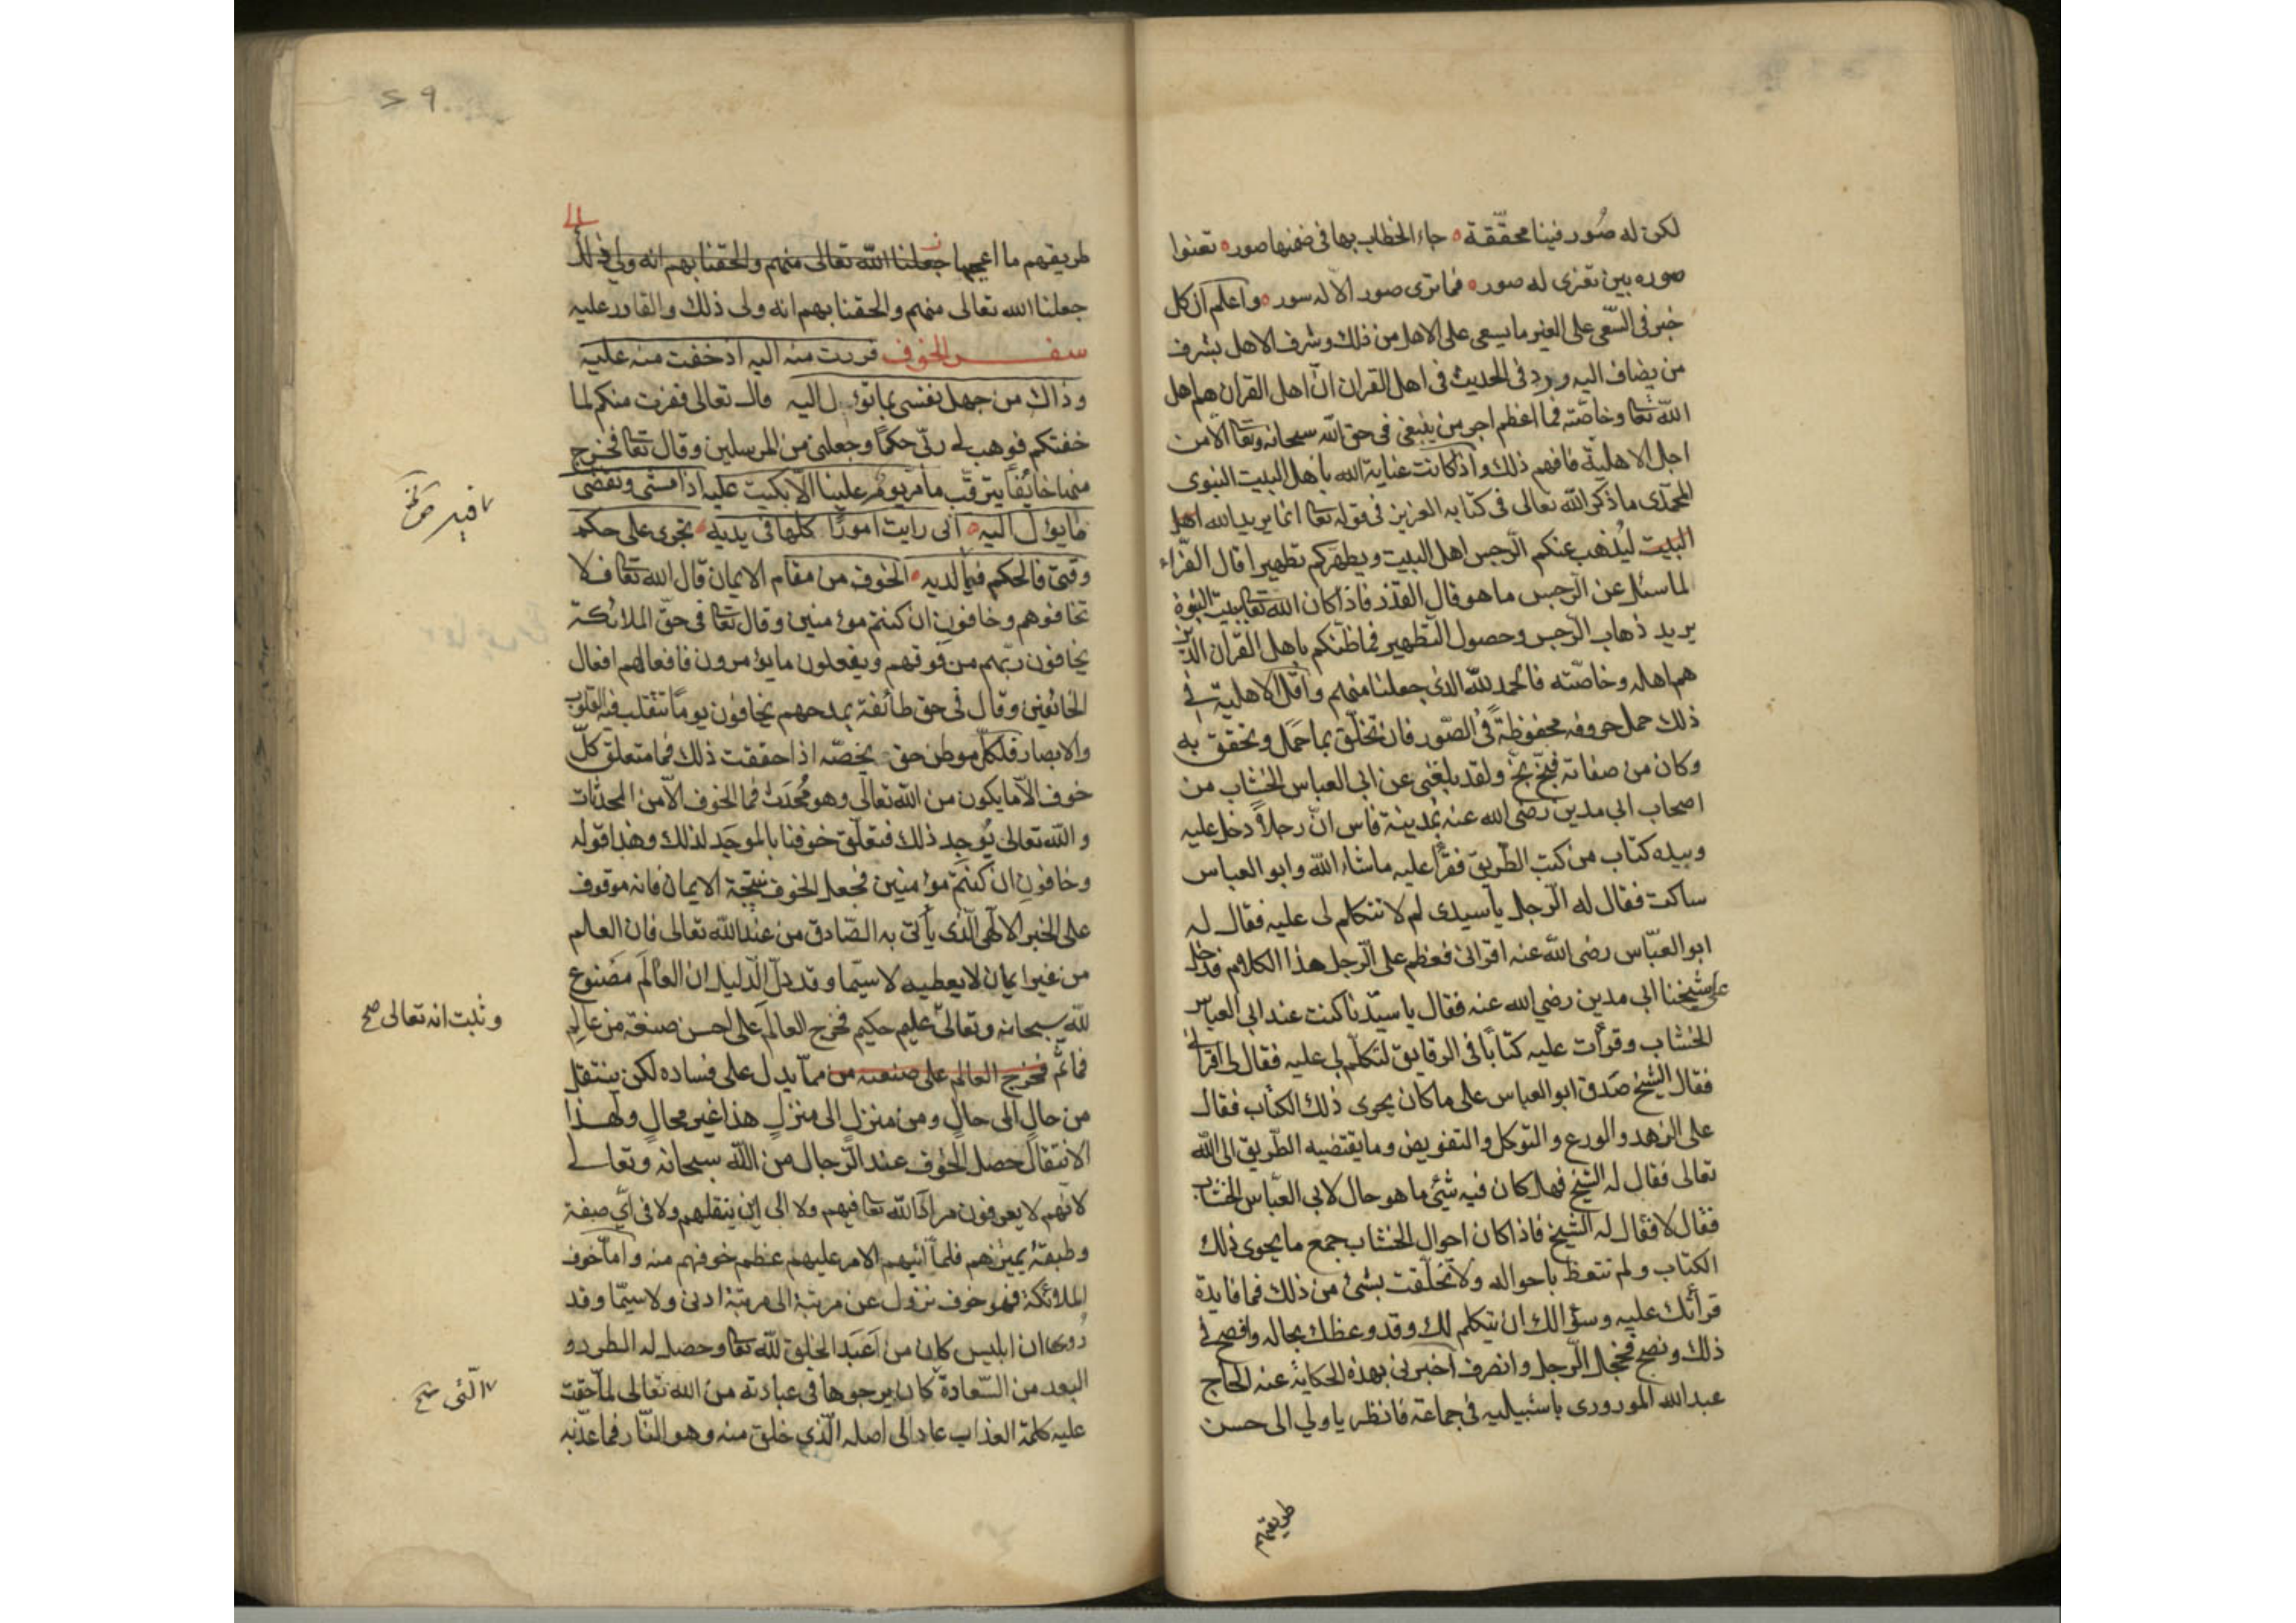 لكن له صُور فينا محقّقة ه جاء الخطاب بها في ضمنها صور ه تعنوا
صوره بين تعزى له صور ه فما ترى صور الا له سور ه واعلم ان كل
خير في السّعي على الغير ما يسعى على الاهل من ذلك وشرف الاهل بشرف
من يضاف اليه ورد في الحديث في اهل القران انّ اهل القران هم اهل
الله تعا وخاصّته فما اعظم اجر من ينبغي في حق الله سبحانه وتعا الا من
اجل الاهلية فافهم ذلك واذا كانت عناية الله باهل البيت النبوى
المحمّدى ما ذكر الله تعالى في كتابه العزيز في قوله تعا انما يريد الله اهل
البيت ليُذهب عنكم الرّجس اهل البيت ويطهّركم تطهيرا قال الفرّاء
لما سئل عن الرّجس ما هو قال القذر فاذا كان الله تعا ببيت النبوة
يريد ذهاب الرّجس وحصول التّطهير فما ظنّكم باهل القرآن الذين
هم اهله وخاصّته فالحمد لله الذى جعلنا منهم واقلّ الاهلية في
ذلك حمل حروفه محفوظةً في الصّدور فان تخلّق بما حَمَل وتحقق به
وكان من صفاته فبخّ بخّ ولقد بلغني عن ابي العباس الخشّاب من
اصحاب ابي مدين رضى الله عنه بمدينة فاس انّ رجلاً دخل عليه
وبيده كتاب من كتب الطّريق فقرأ عليه ما شاء الله وابو العباس
ساكت فقال له الرّجل يا سيدى لم لا تتكلم لى عليه فقال له
ابو العبّاس رضى الله عنه اقرانى فعظم على الرّجل هذا الكلام فدخل
على شيخنا ابي مدين رضي الله عنه فقال يا سيّدنا كنت عند ابي العباس
الخشّاب وقرأت عليه كتابًا في الرقايق لتكلّم لي عليه فقال لى اقرانى
فقال الشّيخ صَدَق ابو العباس على ما كان يحوى ذلك الكتاب فقال
على الزهد والورع والتوكل والتفويض وما يقتضيه الطّريق الى الله
تعالى فقال له الشّيخ فهل كان فيه شئى ما هو حال لابى العبّاس الخشّاب
فقال لا فقال له الشّيخ فاذا كان احوال الخشّاب جمع ما يحوى ذلك
الكتاب ولم تتعظ باحواله ولا تخلّقت بشئ من ذلك فما فايدة
قرأتك عليه وسؤالك ان يتكلم لك وقد وعظك بحاله وافصح في
ذلك ونصح فخجل الرّجل وانصرف اخبرنى بهذه الحكاية عنه الحاج
عبد الله الموزورى باشبيليه في جماعة فانظر يا ولي الى حسن
طريقهم
طريقهم ما اعجبها جعلنا الله تعالى منهم والحقنا بهم انه ولي ذلك
جعلنا الله تعالى منهم والحقنا بهم انه ولى ذلك والقادر عليه
سفر الخوف فررت منه اليه اذ خفت منه عليه
وذاك من جهل نفسى بما تؤل اليه قال تعالى ففررت منكم لما
خفتكم فوهب لي ربّى حكمًا وجعلنى من المرسلين وقال تعا فخرج
منها خائفًا يترقّب ما مرّ يوم علينا الا بكيت عليه اذا مشى وتقضى
ما يؤل اليه ه انى رايت امورًا كلها في يديه ه تجرى على حكم
وقتى فالحكم فيما لديه ه الخوف من مقام الايمان قال الله تعا فلا
تخافوهم وخافونِ ان كنتم مؤمنين وقال تعا في حقّ الملائكة
يخافون ربّهم من فوقهم ويفعلون ما يؤمرون فافعالهم افعال
الخائفين وقال في حق طائفة يمدحهم يخافون يومًا تتقلب فيه القلوب
والابصار فلكلّ موطن حق يخصّه اذا حققت ذلك فما متعلق كلّ
خوف الا ما يكون من الله تعالى وهو مُحْدَث فما الخوف الا من المحدثات
والله تعالى يُوجِد ذلك فتعلّق خوفنا بالموجَد لذلك وهذا قوله
وخافونِ ان كنتم مؤمنين فجعل الخوف نتيجة الايمان فانه موقوف
على الخبر الالهى الذى ياتى به الصّادق من عند الله تعالى فان العلم
من غير ايمان لا يعطيه لا سيّما وقد دلّ الدّليل ان العالَم مَصْنوع
لله سبحانه وتعالى عليم حكيم فخرج العالَم على احسن صنعة من عالِم
فما ثَمَّ فخرج العالم على صنعته من مما يدل على فساده لكن ينتقل
من حالٍ الى حالٍ ومن منزلٍ الى منزلٍ هذا غير محالٍ ولهذا
الانتقال حصل الخوف عند الرّجال من الله سبحانه وتعالى
لانهم لا يعرفون مراد الله تعا فيهم ولا الى اين ينقلهم ولا في اىّ صفة
وطبقة يميّزهم فلما ابهم الامر عليهم عظم خوفهم منه وامّا خوف
الملائكة فهو خوف نزول عن مرتبة الى مرتبة ادنى ولا سيّما وقد
رُوى ان ابليس كان من اَعبَد الخلق لله تعا وحصل له الطرد و
البعد من السّعادة كان يرجوها في عبادته من الله تعالى لما حقت
عليه كلمة العذاب عاد الى اصله الّذى خلق منه وهو النّار فما عذّبه
وثبت انه تعالى صح
الّتى صح